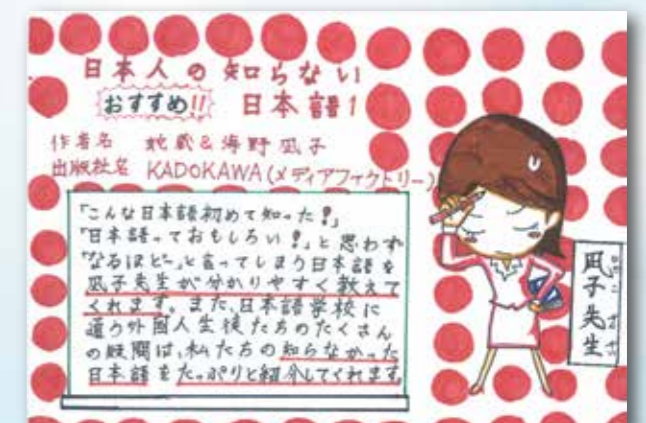 日本人の知らない
おすすめ!! 日本語1
作者名 蛇蔵&海野凪子
出版社名 KADOKAWA(メディアファクトリー)
「こんな日本語初めて知った!」
「日本語っておもしろい!」と思わず
「なるほど~」と言ってしまう日本語を
凪子先生が分かりやすく教えて
くれます。また、日本語学校に
通う外国人生徒たちのたくさん
の疑問は、私たちの知らなかった
日本語をたっぷりと紹介してくれます。
凪子先生